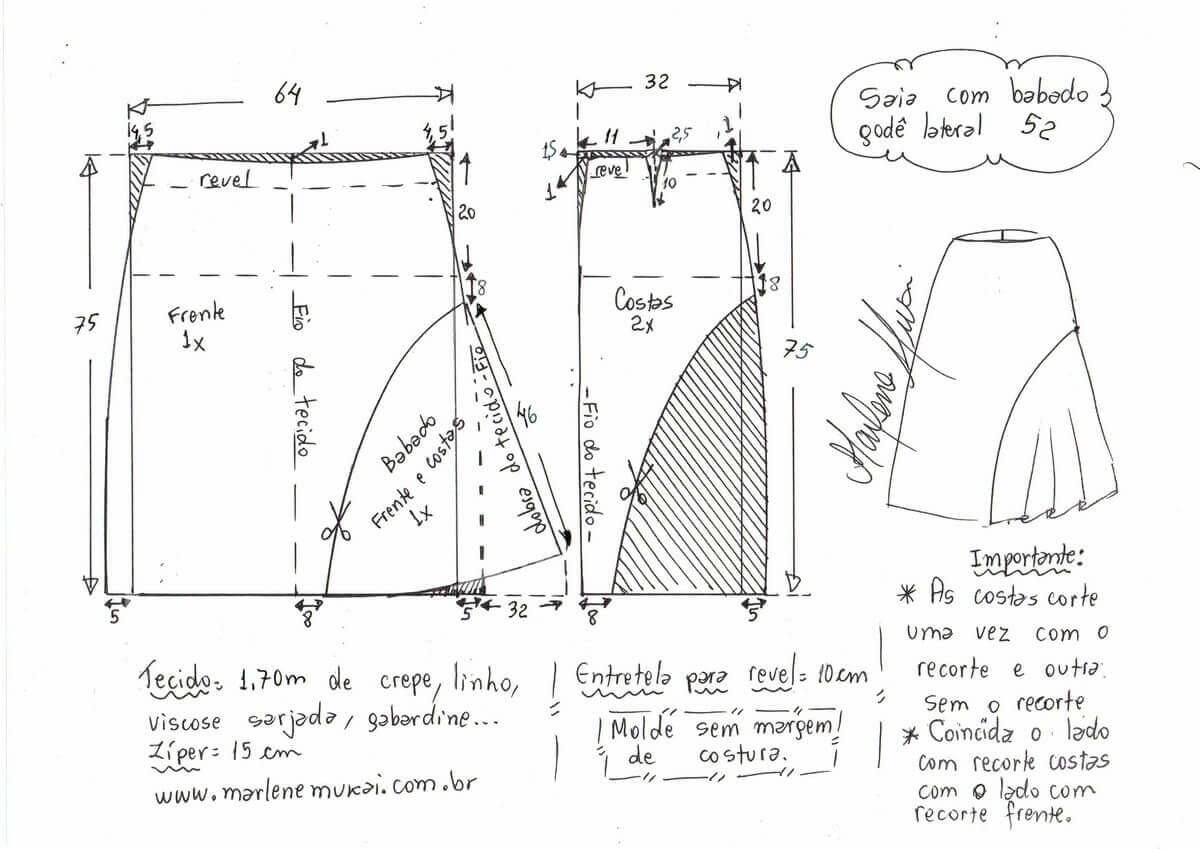 Saia com babado
godê lateral 52
64
4,5
1
4,5
revel
20
8
75
Frente
1x
Fio do tecido
Babado
Frente e costas
1x
46
dobra do tecido-Fio
5
8
5
32
32
11
2,5
1
1,5
1
revel
10
20
8
Costas
2x
75
-Fio do tecido-
8
5
Marlene Mukai
Importante:
* As costas corte
uma vez com o
recorte e outra
sem o recorte
* Coincida o lado
com recorte costas
com o lado com
recorte frente.
Tecido= 1,70m de crepe, linho,
viscose sarjada, gabardine...
Zíper= 15 cm
www.marlenemukai.com.br
Entretela para revel= 10cm
Molde sem margem
de costura.